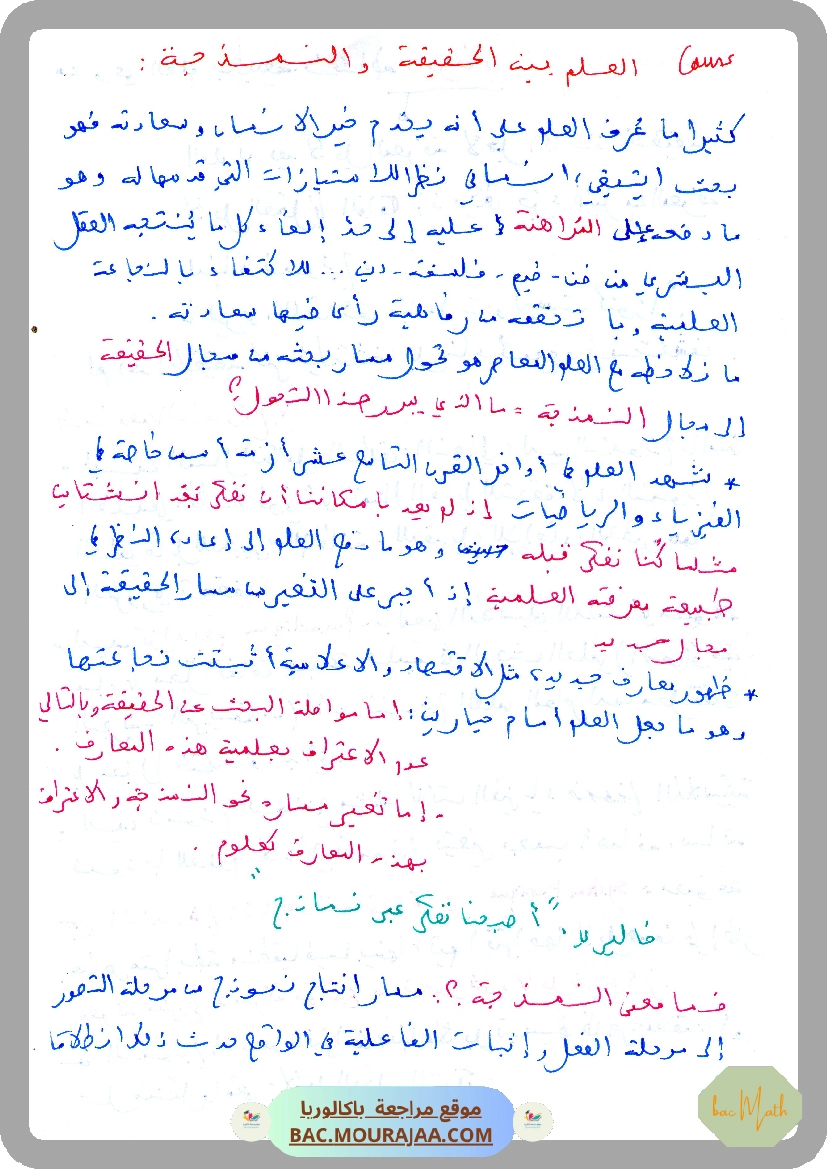 Cours العلم بين الحقيقة والنمذجة :
كثيرا ما عُرف العلم على أنه يقدم خير الانسان وسعادته فهو
بحث إيتيقي، انساني نظرا للامتيازات التي قدمها له وهو
ما دفعه إلى المراهنة عليه إلى حدّ إلغاء كل ما يُنتجه العقل
البشري من فن - قيم - فلسفة - دين ... للاكتفاء بالنجاعة
العلمية وما تحققه من رفاهية رأى فيها سعادته .
ما نلاحظه مع العلم المعاصر هو تحول مسار بحثه من مجال الحقيقة
إلى مجال النمذجة = ما الذي يبرر هذا التحول؟
* شهد العلم في أواخر القرن التاسع عشر أزمة أسس خاصة في
الفيزياء والرياضيات إذ لم يعد بإمكاننا أن نفكر بعد انشتاين
مثلما كُنا نفكر قبله وهو ما دفع العلم إلى إعادة النظر في
طبيعة معرفته العلمية إذ أجبر على التغيير من مسار الحقيقة إلى
مجال جديد
* ظهور معارف جديدة مثل الاقتصاد والاعلامية أثبتت نجاعتها
وهو ما جعل العلم أمام خيارين : إما مواصلة البحث عن الحقيقة وبالتالي
عدم الاعتراف بعلمية هذه المعارف .
- إما تغيير مساره نحو النمذجة والاعتراف
بهذه المعارف كعلوم .
فاليري : "أصبحنا نفكر عبر نماذج"
فما معنى النمذجة ؟: مسار إنتاج نموذج من مرحلة التصور
إلى مرحلة الفعل وإثبات الفاعلية في الواقع انطلاقا
موقع مراجعة باكالوريا
BAC.MOURAJAA.COM
bac Math